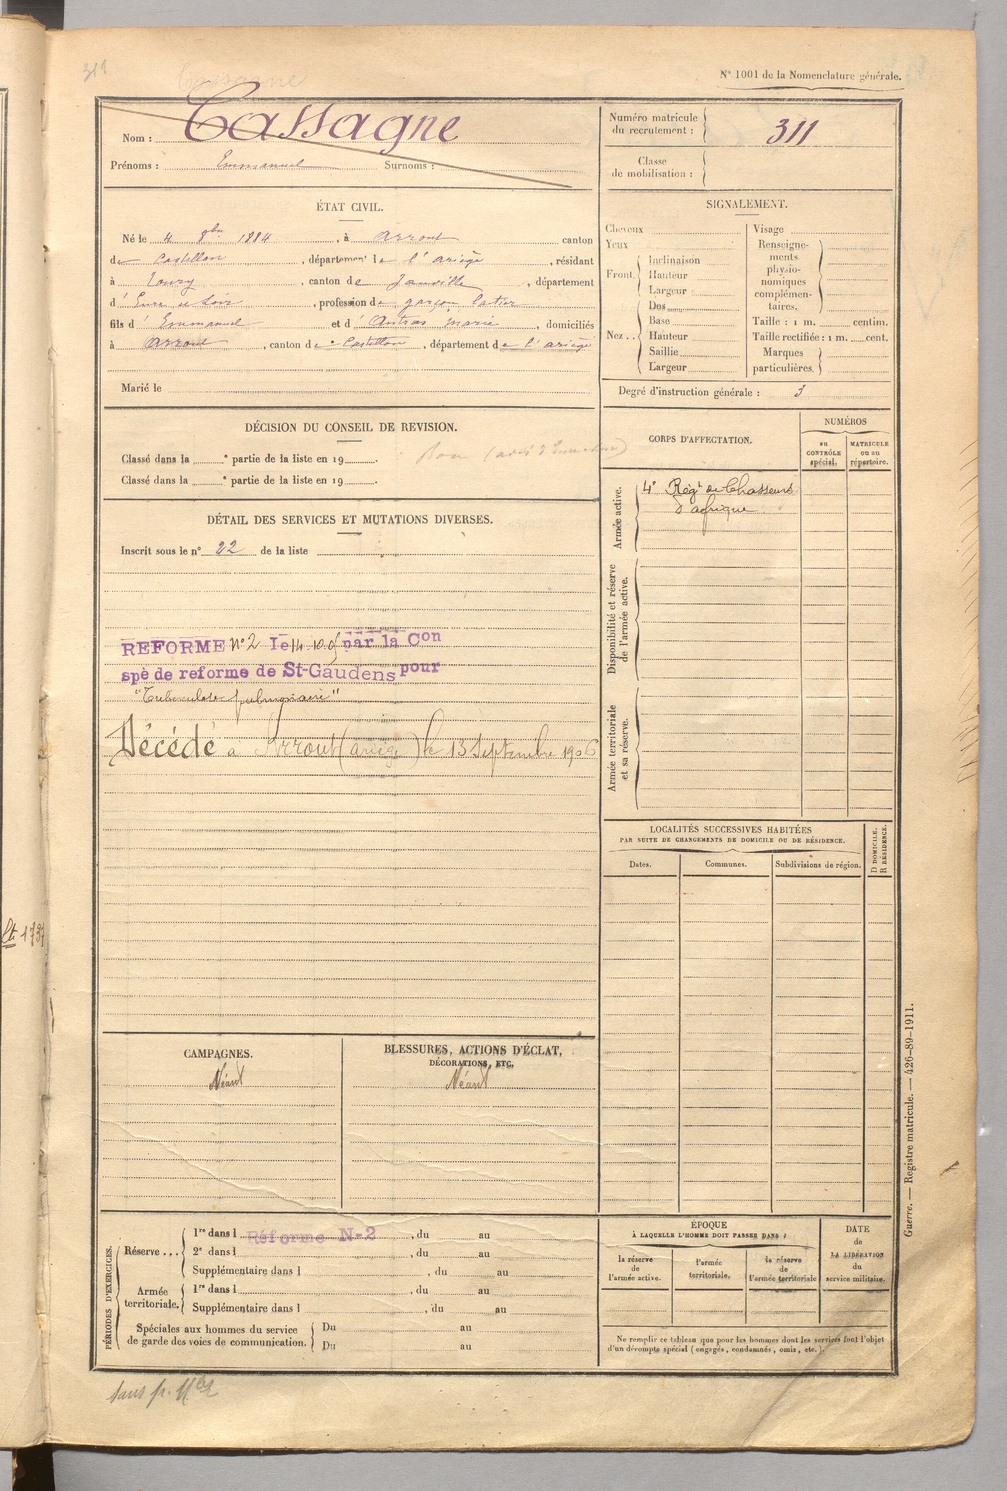 311
Cassagne
N° 1001 de la Nomenclature générale.
Nom : Cassagne
Prénoms : Emmanuel Surnoms :
Numéro matricule du recrutement : 311
Classe de mobilisation :
ÉTAT CIVIL.
Né le 4 8bre 1884, à Arrout canton
de Castillon, département de l'ariège, résidant
à Toury, canton de Janville, département
d'Eure et Loir, profession de garçon laitier
fils d'Emmanuel et d'Autras marie, domiciliés
à Arrout, canton de Castillon, département de l'ariège
Marié le
SIGNALEMENT.
Cheveux
Yeux
Front. Inclinaison
Hauteur
Largeur
Nez.. Dos
Base
Hauteur
Saillie
Largeur
Visage
Renseigne-
ments
physio-
nomiques
complémen-
taires.
Taille : 1 m. centim.
Taille rectifiée : 1 m. cent.
Marques
particulières.
Degré d'instruction générale : 3
DÉCISION DU CONSEIL DE REVISION.
Classé dans la e partie de la liste en 19 .
Classé dans la e partie de la liste en 19 .
CORPS D'AFFECTATION.
NUMÉROS
au CONTRÔLE spécial.
MATRICULE ou au répertoire.
Armée active.
4e Régt de Chasseurs
d'afrique
Disponibilité et réserve de l'armée active.
Armée territoriale et sa réserve.
DÉTAIL DES SERVICES ET MUTATIONS DIVERSES.
Inscrit sous le n° 22 de la liste
REFORME N° 2 le 14.10.05 par la Con
spé de reforme de St-Gaudens pour
"Tuberculose pulmonaire"
Décédé à Arrout (ariège) le 13 Septembre 1906
LOCALITÉS SUCCESSIVES HABITÉES
PAR SUITE DE CHANGEMENTS DE DOMICILE OU DE RÉSIDENCE.
Dates. Communes. Subdivisions de région.
D DOMICILE.
R RÉSIDENCE.
CAMPAGNES.
Néant
BLESSURES, ACTIONS D'ÉCLAT,
DÉCORATIONS, ETC.
Néant
PÉRIODES D'EXERCICES.
Réserve ... 1re dans l Réforme N-2, du au
2e dans l , du au
Supplémentaire dans l , du au
Armée territoriale. 1re dans l , du au
Supplémentaire dans l , du au
Spéciales aux hommes du service
de garde des voies de communication. Du au
Du au
ÉPOQUE
À LAQUELLE L'HOMME DOIT PASSER DANS :
la réserve de l'armée active.
l'armée territoriale.
la réserve de l'armée territoriale
DATE
de
LA LIBÉRATION
du
service militaire.
Ne remplir ce tableau que pour les hommes dont les services font l'objet
d'un décompte spécial (engagés, condamnés, omis, etc.).
Guerre. — Registre matricule. — 426-89-1911.